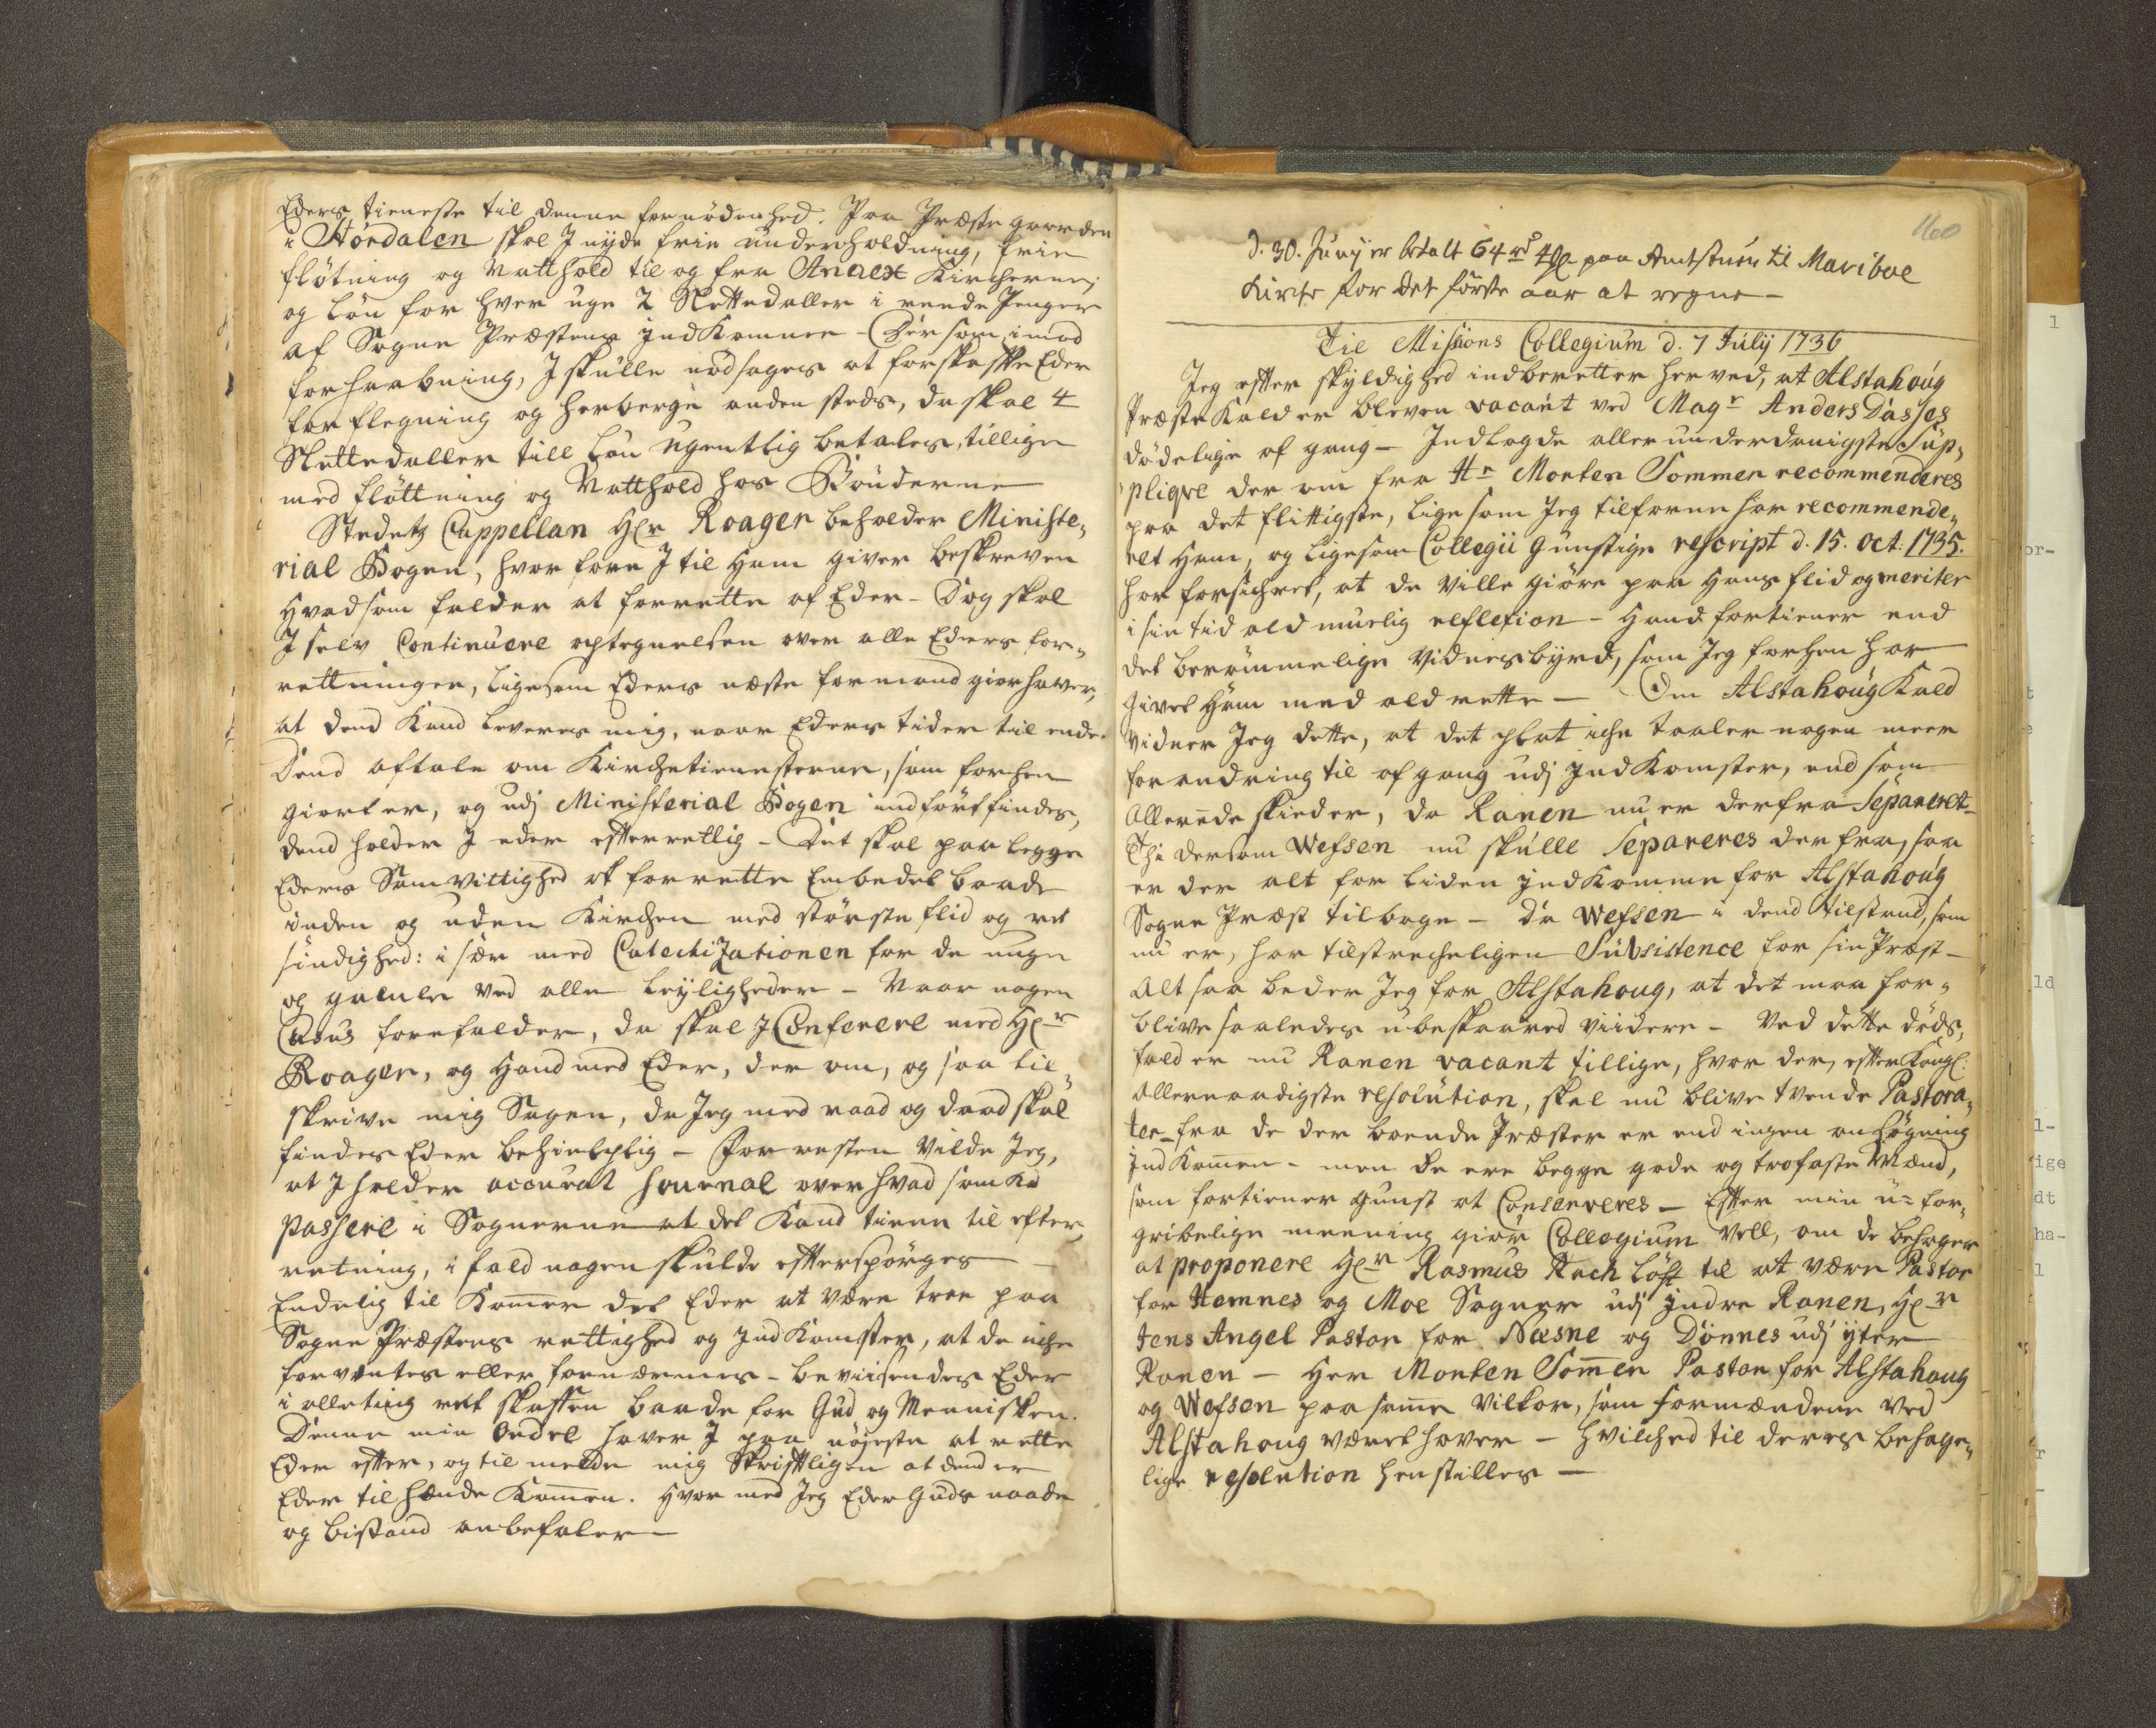 Eders tieneste til denne fornödenhed. Paa Præstegaarden
i Stördalen skal I nyde frie underholdning, frie
flötning og Natthold til og fra Annex Kircherne,
og Løn for hver uge 2 Slettedaller i rende Penger
af Sogne Præstens indKomme - Dersom imod
forhaabning, I skulle nödsages at forskaffe Eder
forflegning og herberge anden steds, da skal 4
Slettedaller till Løn ugentlig betales, tillige
med flöttning og Natthold hos Bönderne
Stedets Cappellan Hr Roager beholder Ministe,,
rial Bogen, hvorfore I til Ham giver beskreven
Hvad som falder at forrette af Eder - Dog skal
I selv Continuere optegnelsen over alle Eders for,,
rettninger, ligesom Eders næste formand giort haver,
at dend Kand leveres mig, naar Eders tider til ende.
Dend aftale om Kirchetienesterne, som forhen
giort er, og udj Ministerial Bogen indfört findes,
dend holder I eder efterrettlig - Det skal paa legge
Eders Samvittighed at forrette Embedet baade
inden og uden Kirchen med störste flid og ret
sindighed: i sær med Catechizationen for de unge
og gamle ved alle Leyligheder - Naar nogen
Casus forefalder, da skal I Conferere med Hr
Roager, og Hand med Eder, der om, og saa til,,
skrive mig Sagen, da Jeg med raad og daad skal
findes Eder behielplig - For resten vilde Jeg,
at I holder accurat Journal over hvad som Kd
passere i Sognerne at det Kand tiene til efter,,
retning, i fald nogen skulde efterspörges
Endelig til Kommer det Eder at være troe paa
Sogne Præstens rettighed og IndKomster, at de iche
forventes eller fornærmes - beviisendes Eder
i alleting ret skaffen baade for Gud og Mennisken.
Denne min Ordre haver I paa nöjeste at rette
Eder efter, og til melde mig Skriftligen at dend er
Eder til hænde Kommen. Hvor med Jeg Eder Guds naade
og bistand anbefaler
160
d. 30. Junij er betalt 64 rd 4 paa Amtstuen til Mariboe
Kirke for det förste aar at regne -
Til Missions Collegium d. 7 Julij 1736
Jeg efter skyldighed indberetter herved, at Alstahoug
Præste Kald er bleven vacant ved Magr Anders Dasses
dödelige af gang - Indlagde allerunderdanigste Sup,,
plique der om fra Hr Morten Sommer recommenderes
paa det flittigste, lige som Jeg tilforne har recommende,,
ret Ham, og ligesom Collegii gunstige rescript d. 15. oct. 1735.
har forsichret, at de ville giöre paa Hans flid og meriter
i sin tid ald muelig reflexion - Hand fortiener end
det berömmelige Vidnesbyrd, som Jeg forhen har
givet Ham med ald rette - Om Alstahoug Kald
Vidner Jeg dette, at det plat iche taaler nogen meer
forandring til afgang udj IndKomster, end som
allerede skieder, da Ranen nu er derfra Separeret -
Thi dersom Wefsen nu skulle Separeres der fra, saa
er der alt for liden indKomme for Alstahoug
Sogne Præst tilbage - Da Wefsen i dend tilstand, som
nu er, har tilstrecheligen Subsistence for sin Præst -
Alt saa beder Jeg for Alstahoug, at det maa for,,
blive saaledes ubeskaaret viidere - Ved dette döds,,
fald er nu Ranen vacant tillige, hvor der, efter Kongl:
allernaadigste resolution, skal nu blive tvende Pastora,,
ter - fra de der boende Præster er end ingen ansögning
IndKommen - men de ere begge gode og trofaste Mænd,
som fortiener gunst at Conserveres - Efter min u- for,,
gribelige meening giör Collegium vell, om de behager
at proponere Hr Rasmus Rach Löst til at være Pastor
for Hemnes og Moe Sogner udj Indre Ranen, Hr
Jens Angel Pastor for Næsne og Dönnes udj yter
Ranen - Her Morten Sommer Pastor for Alstahoug
og Wefsen paa samme Vilkor, som Formændene ved
Alstahoug været haver - Hvilched til deres behage,,
lige resolution henstilles -